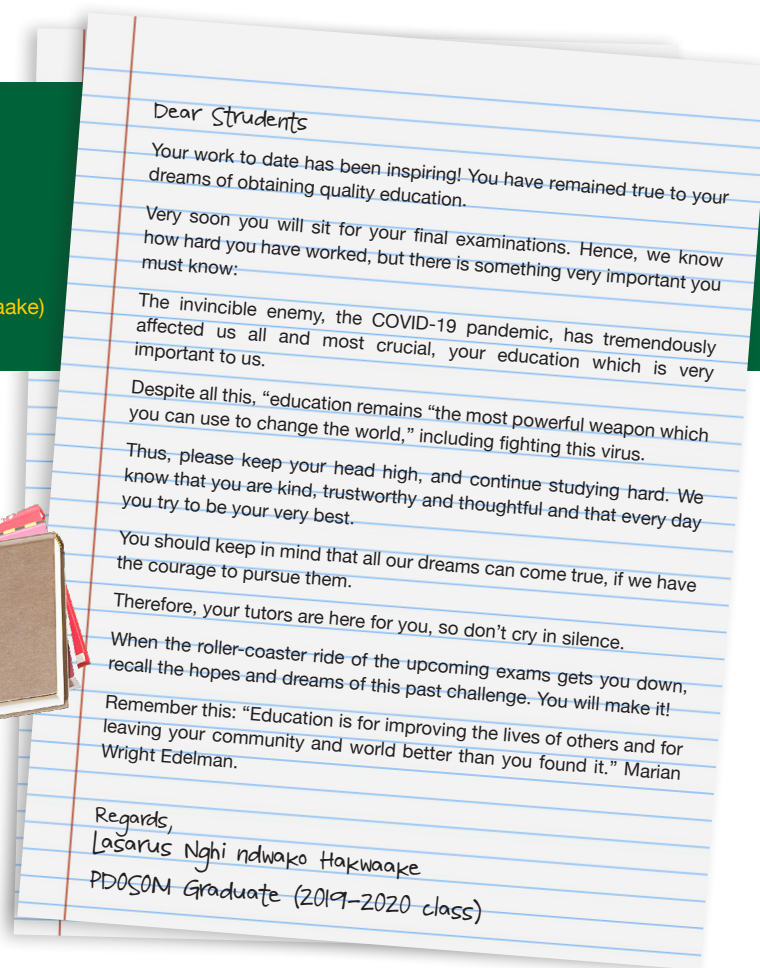 Dear Strudents
Your work to date has been inspiring! You have remained true to your
dreams of obtaining quality education.
Very soon you will sit for your final examinations. Hence, we know
how hard you have worked, but there is something very important you
must know:
aake)
The invincible enemy, the COVID-19 pandemic, has tremendously
affected us all and most crucial, your education which is very
important to us.
Despite all this, “education remains “the most powerful weapon which
you can use to change the world,” including fighting this virus.
Thus, please keep your head high, and continue studying hard. We
know that you are kind, trustworthy and thoughtful and that every day
you try to be your very best.
You should keep in mind that all our dreams can come true, if we have
the courage to pursue them.
Therefore, your tutors are here for you, so don’t cry in silence.
When the roller-coaster ride of the upcoming exams gets you down,
recall the hopes and dreams of this past challenge. You will make it!
Remember this: “Education is for improving the lives of others and for
leaving your community and world better than you found it.” Marian
Wright Edelman.
Regards,
Lasarus Nghi ndwako Hakwaake
PDOSOM Graduate (2019-2020 class)